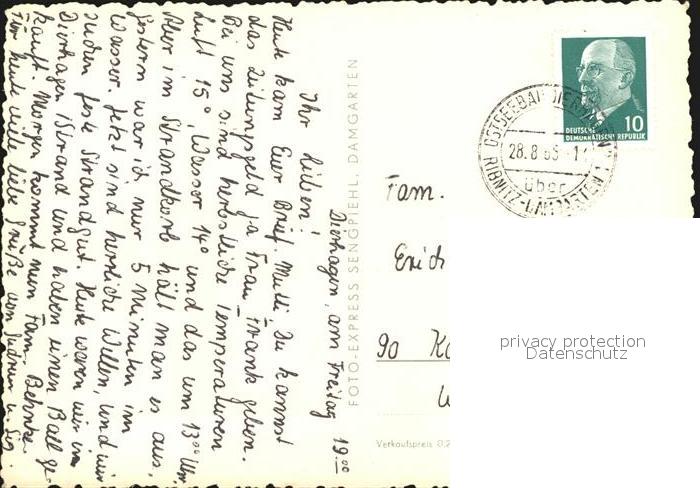 Dierhagen, am Freitag 19.00
Ihr Lieben!
Heute kam Euer Brief. Mutti Du kannst
das Zeitungsgeld ja Frau Frank geben.
Bei uns sind herbstliche Temperaturen
Luft 15°, Wasser 14° und das um 13°° Uhr.
Aber im Strandkorb hält man es aus,
gestern war ich nur 5 Minuten im
Wasser. Jetzt sind herrliche Wellen, und wir
suchen feste Strandgut. Heute waren wir in
Dierhagen Strand und haben einen Ball ge-
kauft. Morgen kommt nun Fam. Behnke.
Für heute viele liebe Grüße von
FOTO-EXPRESS SENGPIEHL, DAMGARTEN
DEUTSCHE
DEMOKRATISCHE REPUBLIK 10
OSTSEEBAD DIERHAGEN
28.8
über
RIBNITZ-DAMGARTEN
Fam.
Erich
90 K
privacy protection
Datenschutz
Verkaufspreis 0,2